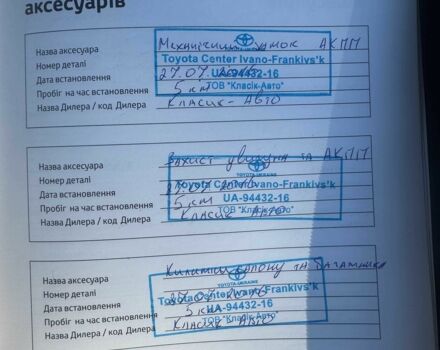 аксесуарів
Назва аксесуара Механічний замок АКПП
Номер деталі Toyota Center Ivano-Frankivs'k
Дата встановлення 27.07. UA-94432-16
Пробіг на час встановлення 5 км ТОВ "Класік-Авто"
Назва Дилера / код Дилера Класік - Авто
Назва аксесуара Захист двигуна та АКПП
TOYOTA UKRAINE
Номер деталі Toyota Center Ivano-Frankivs'k
Дата встановлення UA-94432-16
Пробіг на час встановлення 5 км ТОВ "Класік-Авто"
Назва Дилера / код Дилера Класік Авто
Назва аксесуара Килимки салону та багажника
TOYOTA UKRAINE
Номер деталі Toyota Center Ivano-Frankivs'k
Дата встановлення 27.07. UA-94432-16
Пробіг на час встановлення 5 км ТОВ "Класік-Авто"
Назва Дилера / код Дилера Класік Авто